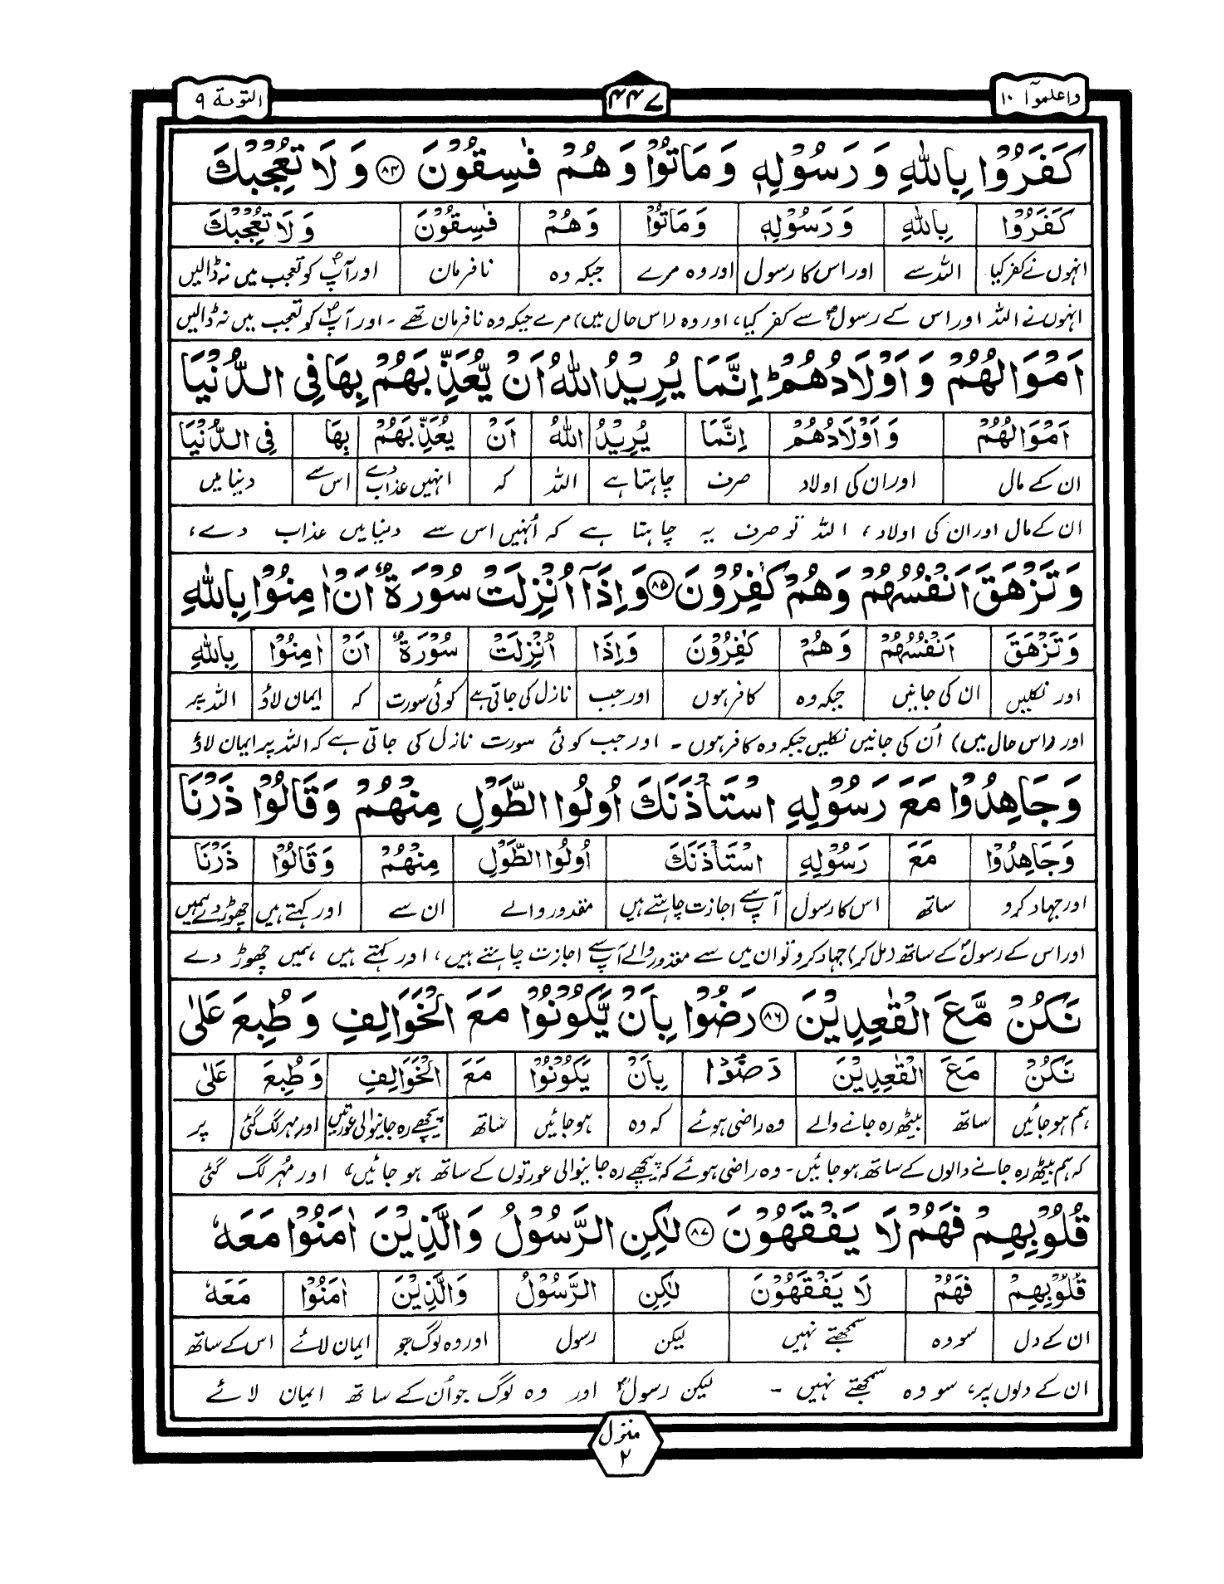 واعلموآ ۱۰
۴۴۷
التوبة ۹
كَفَرُوْا بِاللّٰهِ وَ رَسُوْلِهٖ وَ مَاتُوْا وَ هُمْ فٰسِقُوْنَ ۝۸۴ وَ لَا تُعْجِبْكَ
كَفَرُوْا بِاللّٰهِ وَ رَسُوْلِهٖ وَ مَاتُوْا وَ هُمْ فٰسِقُوْنَ وَ لَا تُعْجِبْكَ
انہوں نے کفر کیا اللہ سے اور اس کا رسول اور وہ مرے جبکہ وہ نافرمان اور آپؐ کو تعجب میں نہ ڈالیں
انہوں نے اللہ اور اس کے رسولؐ سے کفر کیا، اور وہ (اس حال میں) مرے جبکہ وہ نافرمان تھے۔ اور آپؐ کو تعجب میں نہ ڈالیں
اَمْوَالُهُمْ وَ اَوْلَادُهُمْ ؕ اِنَّمَا يُرِيْدُ اللّٰهُ اَنْ يُّعَذِّبَهُمْ بِهَا فِى الدُّنْيَا
اَمْوَالُهُمْ وَ اَوْلَادُهُمْ اِنَّمَا يُرِيْدُ اللّٰهُ اَنْ يُعَذِّبَهُمْ بِهَا فِى الدُّنْيَا
ان کے مال اور ان کی اولاد صرف چاہتا ہے اللہ کہ انہیں عذاب دے اس سے دنیا میں
ان کے مال اور ان کی اولاد، اللہ تو صرف یہ چاہتا ہے کہ اُنہیں اس سے دنیا میں عذاب دے،
وَ تَزْهَقَ اَنْفُسُهُمْ وَ هُمْ كٰفِرُوْنَ ۝۸۵ وَ اِذَاۤ اُنْزِلَتْ سُوْرَةٌ اَنْ اٰمِنُوْا بِاللّٰهِ
وَ تَزْهَقَ اَنْفُسُهُمْ وَ هُمْ كٰفِرُوْنَ وَ اِذَا اُنْزِلَتْ سُوْرَةٌ اَنْ اٰمِنُوْا بِاللّٰهِ
اور نکلیں ان کی جانیں جبکہ وہ کافر ہوں اور جب نازل کی جاتی ہے کوئی سورت کہ ایمان لاؤ اللہ پر
اور (اس حال میں) اُن کی جانیں نکلیں جبکہ وہ کافر ہوں۔ اور جب کوئی سورت نازل کی جاتی ہے کہ اللہ پر ایمان لاؤ
وَ جَاهِدُوْا مَعَ رَسُوْلِهِ اسْتَاْذَنَكَ اُولُوا الطَّوْلِ مِنْهُمْ وَ قَالُوْا ذَرْنَا
وَ جَاهِدُوْا مَعَ رَسُوْلِهِ اسْتَاْذَنَكَ اُولُوا الطَّوْلِ مِنْهُمْ وَ قَالُوْا ذَرْنَا
اور جہاد کرو ساتھ اس کا رسول آپؐ سے اجازت چاہتے ہیں مقدور والے ان سے اور کہتے ہیں چھوڑ دے ہمیں
اور اس کے رسولؐ کے ساتھ (مل کر) جہاد کرو تو ان میں سے مقدور والے آپؐ سے اجازت چاہتے ہیں، اور کہتے ہیں ہمیں چھوڑ دے
نَكُنْ مَّعَ الْقٰعِدِيْنَ ۝۸۶ رَضُوْا بِاَنْ يَّكُوْنُوْا مَعَ الْخَوَالِفِ وَ طُبِعَ عَلٰى
نَكُنْ مَعَ الْقٰعِدِيْنَ رَضُوْا بِاَنْ يَكُوْنُوْا مَعَ الْخَوَالِفِ وَ طُبِعَ عَلٰى
ہم ہو جائیں ساتھ بیٹھ رہ جانے والے وہ راضی ہوئے کہ وہ ہو جائیں ساتھ پیچھے رہ جانیوالی عورتیں اور مہر لگ گئی پر
کہ ہم بیٹھ رہ جانے والوں کے ساتھ ہو جائیں۔ وہ راضی ہوئے کہ پیچھے رہ جانیوالی عورتوں کے ساتھ ہو جائیں، اور مُہر لگ گئی
قُلُوْبِهِمْ فَهُمْ لَا يَفْقَهُوْنَ ۝۸۷ لٰكِنِ الرَّسُوْلُ وَ الَّذِيْنَ اٰمَنُوْا مَعَهٗ
قُلُوْبِهِمْ فَهُمْ لَا يَفْقَهُوْنَ لٰكِنِ الرَّسُوْلُ وَ الَّذِيْنَ اٰمَنُوْا مَعَهٗ
ان کے دل سو وہ سمجھتے نہیں لیکن رسول اور وہ لوگ جو ایمان لائے اس کے ساتھ
ان کے دلوں پر، سو وہ سمجھتے نہیں۔ لیکن رسولؐ اور وہ لوگ جو اُن کے ساتھ ایمان لائے
منزل
۲